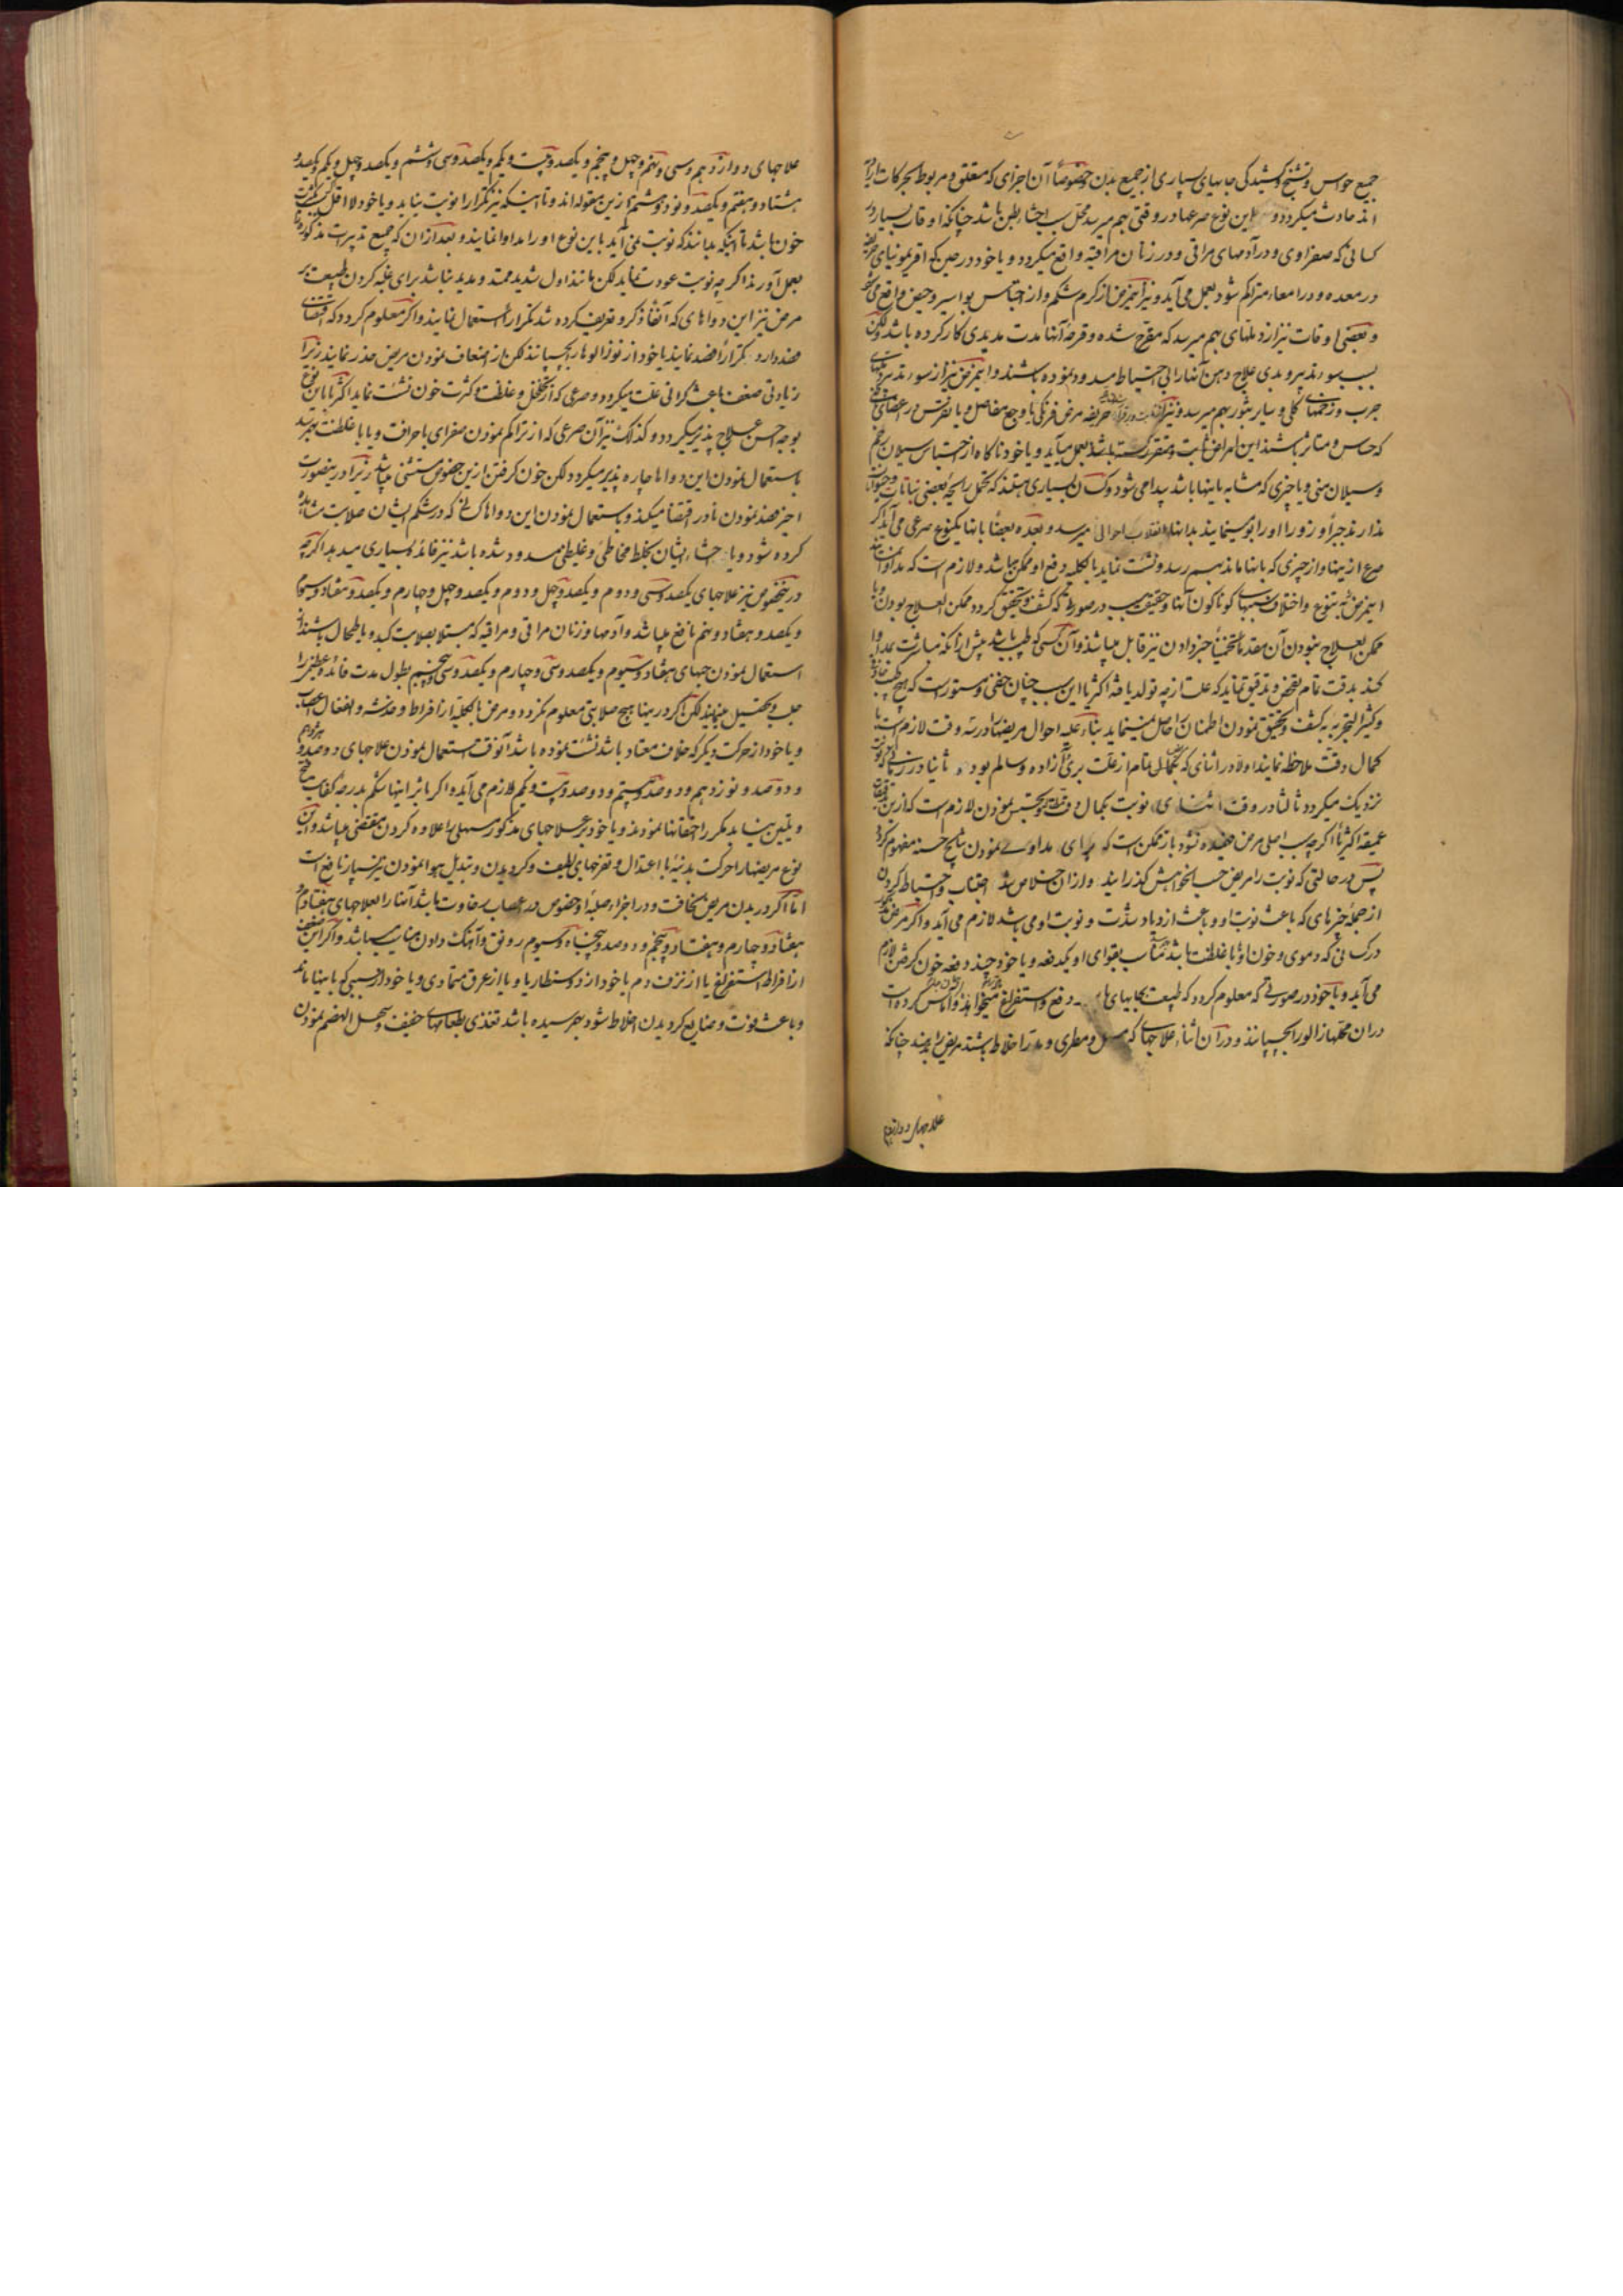 جمیع حواس و تشنج و کشیدگی جابهای بسیاری از جمیع بدن خصوصاً آن اجزای که متعلق و مربوط بحرکات
اند حادث میگردد و این نوع صرعها در وقتی بهم میرسد که محل سبب احشاء بطن باشد چنانکه اوقات بسیار در
کسانی که صفراوی و در آدمهای مراقی و در زنان مراقیه واقع میگردد و یا خود در حین که
در معده و در امعاء متراکم شود بعمل می آید و نیز اینمرض از کرم شکم و از احتباس بواسیر و حیض واقع می شود
و بعضی اوقات نیز از دملهای بهم میرسد که مقرح شده و قرحه آنها مدت مدیدی کار کرده باشد ولکن
بسبب سوء تدبیر و بدی علاج دهن آنها را بی احتیاط مسدود نموده باشند و اینمرض نیز از سوء تدبیر
جرب و زخمهای کلی و سایر بثور بهم میرسد و نیز مرض فرنگی یا وجع مفاصل و یا نقرس در اعضای
که حساس و متاثر باشند این امراض ثابت و متقرر گشته باشد بعمل میآید و یا خود ناگاه از احتباس سیلان رحم
و سیلان منی و یا چیزی که مشابه باینها باشد پیدا می شود و کسان بسیاری هستند که تحمل رایحه بعضی نباتات و حیوانات
ندارند جبراً و زوراً او را بو مینمایند بدانها انقلاب احوالی میرسد و بعده بعضاً بانها یکنوع صرعی می آید اگر
صرع از اینها و از چیزی که باینها ماند بهم رسد و نشئت نماید بالکلیه رفع او ممکن میباشد و لازم است که
اینمرض به تنوع و اختلاف سببهای کوناکون آنها و حقیقت سبب در صورتی که کشف و تحقیق گردد ممکن العلاج بودن و یا
ممکن العلاج نبودن آن مقدماً تخمیناً خبر دادن نیز قابل میباشد و آن کسی که طبیب باشد پیش از آنکه مباشرت بمداوا
کند بدقت تمام تفحص و تدقیق نماید که علت از چه تولد یافته اکثریا این سبب چنان خفی و مستور است که هیچ
و کثیر التجربه به کشف و تحقیق نمودن اطمنان حاصل نمینماید بناء علیه احوال مریضها در سه وقت لازم است
کمال دقت ملاحظه نمایند اولاً در اثنای که بکمالی تمام از علت بری و آزاده و سالم بود ثانیا در زمانی که نوبت
نزدیک میگردد ثالثا در وقت اثنای نوبت بکمال دقت تجسس نمودن لازم است که ازین
عمیقه اکثریا اگرچه سبب اصلی مرض فهمیده نشود باز ممکن است که برای مداوای نمودن نتایج حسنه مفهوم گردد
پس در حالتی که نوبت را مریض حسب الخواهش گذرانید و از آن خلاص شد اجتناب و احتیاط کردن
از جمله چیزهای که باعث نوبت او و باعث ازدیاد شدت و نوبت او می باشد لازم می آید و اگر مرض
در کسانی که دموی و خون او با غلظت باشد مناسب بقوای او یکدفعه و یا خود چند دفعه خون گرفتن لازم
می آید و یا خود در صورتی که معلوم گردد که طبیعت بجابهای دفع و استفراغ میخواهد و آماس کرده است
در آن محلها زالو را بچسپانند و در آن اثناء علاجهای که مسهل و مطری و مدر اخلاط باشند بمریض بدهند چنانکه
علاجهای دوازدهم
علاجهای دوازدهم و سی و نهم و چهل و پنجم و یکصد و بیست و یکم و یکصد و سی و ششم و یکصد و چهل و یکم و یکصد و
هشتاد و هفتم و یکصد و نود و ششم ازین مقوله اند و تا اینکه نیز تکراراً نوبت نیاید و یا خود لا اقل
خون باشد تا اینکه بدانند که نوبت نمی آید باین نوع او را مداوا نمایند و بعد از آن که جمیع تدبیرات مذکوره را
بعمل آورند اگرچه نوبت عودت نماید لکن مانند اول شدید ممتد و مدید نباشد برای غلبه کردن طبیعت بر
مرض نیز این دواهای که آنفاً ذکر و تعریف کرده شد تکراراً استعمال نمایند و اگر معلوم گردد که اقتضای
فصد دارد تکراراً فصد نمایند یا خود از نو زالوها را بچسپانند لکن از اضعاف نمودن مریض حذر نمایند زیرا
زیادتی ضعف باعث گرانی علت میگردد و صرعی که از تخلخل و غلظت و کثرت خون نشئت نماید اکثریا باین نوع
بوجه احسن علاج پذیر میگردد و کذلک نیز آن صرعی که از تراکم نمودن صفرای با حرافت و یا با غلظت بهم رسد
باستعمال نمودن این دواها چاره پذیر میگردد لکن خون گرفتن ازین خصوص مستثنی میباشد زیرا در اینصورت
اجرا فصد نمودن نادر اقتضا میکند و باستعمال نمودن این دواها کسانی که در شکم ایشان صلابت مشاهده
کرده شود و یا احشاء ایشان بخلط مخاطی و غلیظی مسدود شده باشد نیز فائده بسیاری میدهد اگرچه
درینخصوص نیز علاجهای یکصد و سی و دوم و یکصد و چهل و دوم و یکصد و چهل و چهارم و یکصد و هفتاد و سوم
و یکصد و هفتاد و نهم نافع میباشد و آدمها و زنان مراقی و مراقیه که مبتلا بصلابت کبد و یا طحال باشند از
استعمال نمودن حبهای هفتاد و سیوم و یکصد و سی و چهارم و یکصد و سی و پنجم بطول مدت فائده عظیم را
جلب و تحصیل مینمایند لکن اگر در اینها هیچ صلابتی معلوم نگردد و مرض بالکلیه از افراط و خدشه و انفعال اعصاب
و یا خود از حرکت دیگر که خلاف معتاد باشد نشئت نموده باشد آنوقت استعمال نمودن علاجهای دوصد و هژدهم
و دوصد و نوزدهم و دوصد و بیستم و دوصد و بیست و یکم لازم می آید و اگر باثر اینها شکم بدرجه کفایت
و تلیین نیابد مکرر احتقانها نمودند و یا خود بر علاجهای مذکور مسهلی را علاوه کردن مقتضی میباشد و این
نوع مریضها را حرکت بدنیه با اعتدال و تفرجهای لطیف و گردیدن و تبدیل هوا نمودن نیز بسیار نافع است
اما اگر در بدن مریض نحافت و در اجزاء صلبه او خصوص در اعصاب رخاوت باشد آنها را بعلاجهای هفتاد و دوم و
هفتاد و چهارم و هفتاد و پنجم و دوصد و پنجاه و سیوم رونق و آهنگ دادن مناسب میباشد و اگر این ضعف
از افراط استفراغ یا از نزف دم یا خود از ذوسنطاریا و یا از عرق متمادی و یا خود از سببی که باینها ماند
و باعث فوت و ضایع گردیدن اخلاط شود بهم رسیده باشد تغذی بطعامهای خفیف و سهل الهضم نمودن